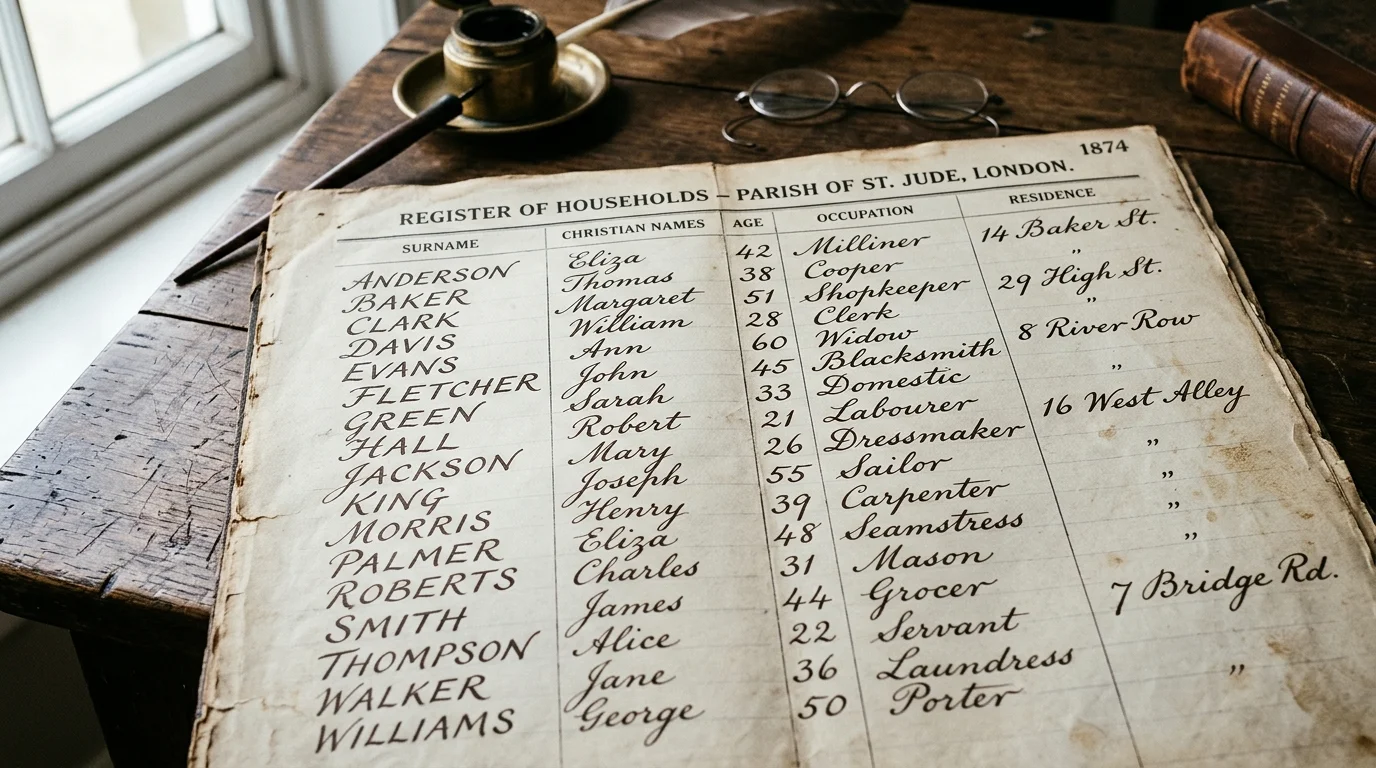 1874
REGISTER OF HOUSEHOLDS – PARISH OF ST. JUDE, LONDON.
SURNAME CHRISTIAN NAMES AGE OCCUPATION RESIDENCE
ANDERSON Eliza 42 Milliner 14 Baker St.
BAKER Thomas 38 Cooper „
CLARK Margaret 51 Shopkeeper 29 High St.
DAVIS William 28 Clerk „
EVANS Ann 60 Widow 8 River Row
FLETCHER John 45 Blacksmith
GREEN Sarah 33 Domestic „
HALL Robert 21 Labourer 16 West Alley
JACKSON Mary 26 Dressmaker
KING Joseph 55 Sailor „
MORRIS Henry 39 Carpenter „
PALMER Eliza 48 Seamstress „
ROBERTS Charles 31 Mason „
SMITH James 44 Grocer
THOMPSON Alice 22 Servant 7 Bridge Rd.
WALKER Jane 36 Laundress
WILLIAMS George 50 Porter „